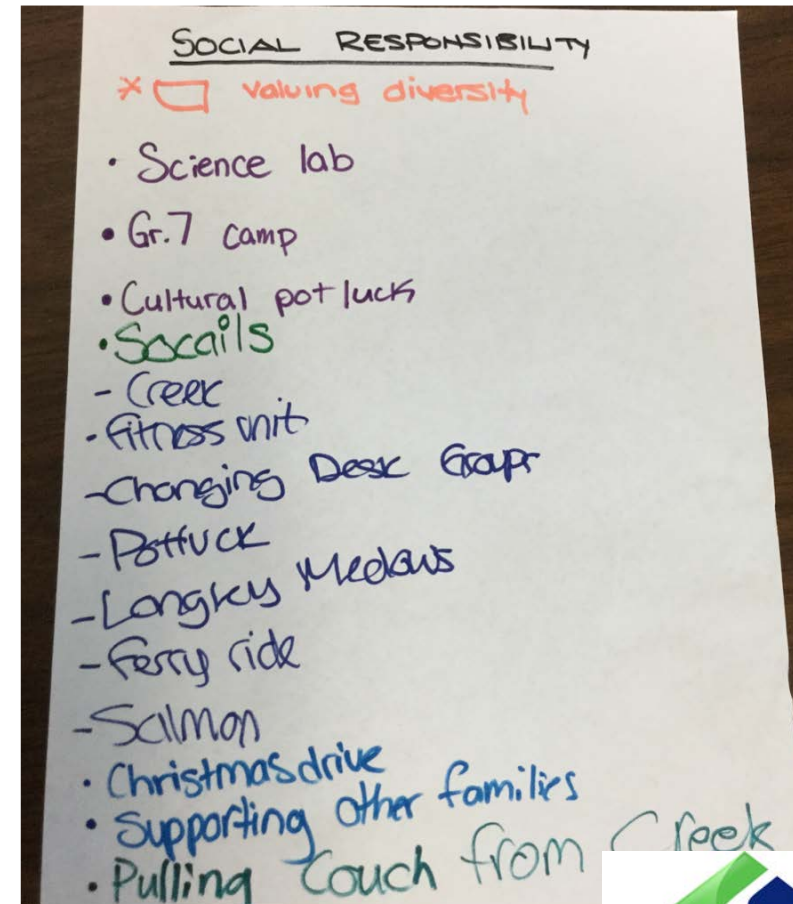 SOCIAL RESPONSIBILITY
* valuing diversity
• Science lab
• Gr.7 camp
• Cultural potluck
• Socails
- Creek
- fitness unit
- Changing Desk Groups
- Pottuck
- Longley Medows
- ferry ride
- Salmon
• Christmas drive
• Supporting other families
• Pulling Couch from Creek